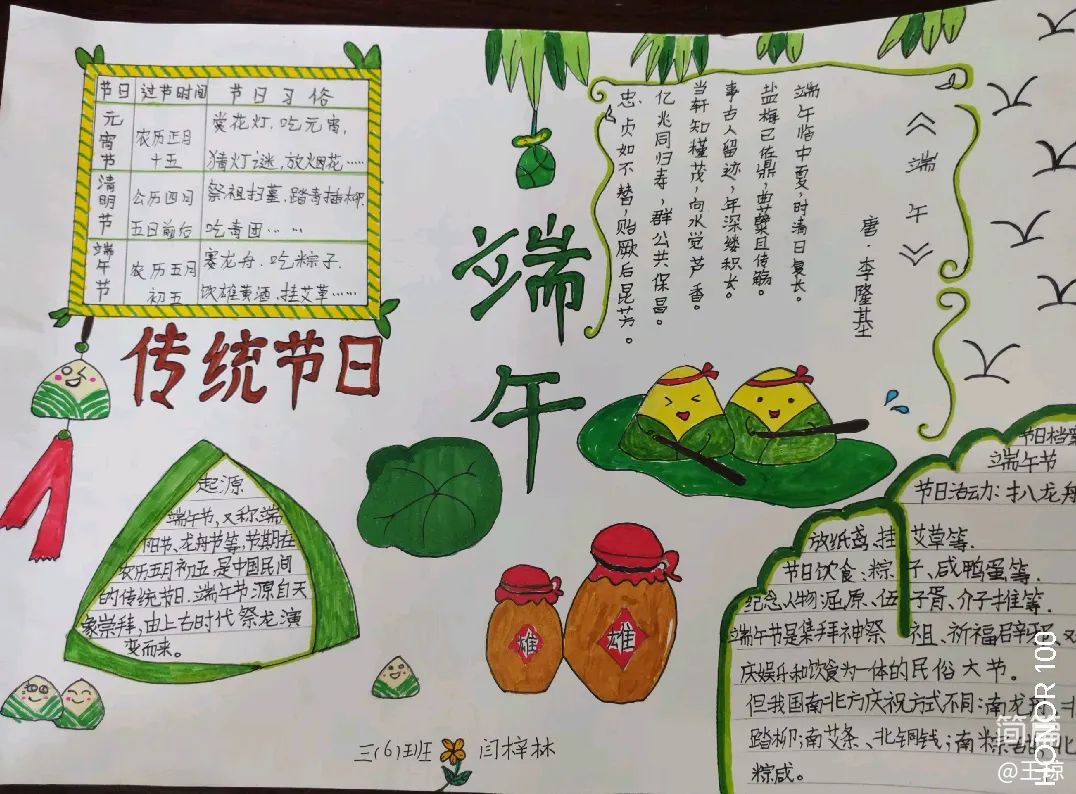 节日 过节时间 节日习俗
元宵节 农历正日十五 赏花灯,吃元宵,
猜灯谜,放烟花……
清明节 公历四月五日前后 祭祖扫墓,踏青插柳
吃青团……
端午节 农历五月初五 赛龙舟.吃粽子.
饮雄黄酒.挂艾草……
传统节日
端午
《端午》
唐·李隆基
端午临中夏,时清日复长。
盐梅已佐鼎,曲糵且传觞。
事古人留迹,年深缕积长。
当轩知槿茂,向水觉芦香。
亿兆同归寿,群公共保昌。
忠贞如不替,贻厥后昆芳。
起源
端午节,又称端
阳节、龙舟节等,节期在
农历五月初五,是中国民间
的传统节日.端午节源自天
象崇拜,由上古时代祭龙演
变而来。
雄
雄
节日档案
端午节
节日活动:扒龙舟
放纸鸢,挂艾草等.
节日饮食:粽子、咸鸭蛋等.
纪念人物:屈原、伍子胥、介子推等.
端午节是集拜神祭祖、祈福辟邪、
庆娱乐和饮食为一体的民俗大节。
但我国南北方庆祝方式不同:南龙舟、北
踏柳;南艾条、北铜钱;南粽北
粽咸。
三(6)班 闫梓林
HONOR 100
简篇
@王琼